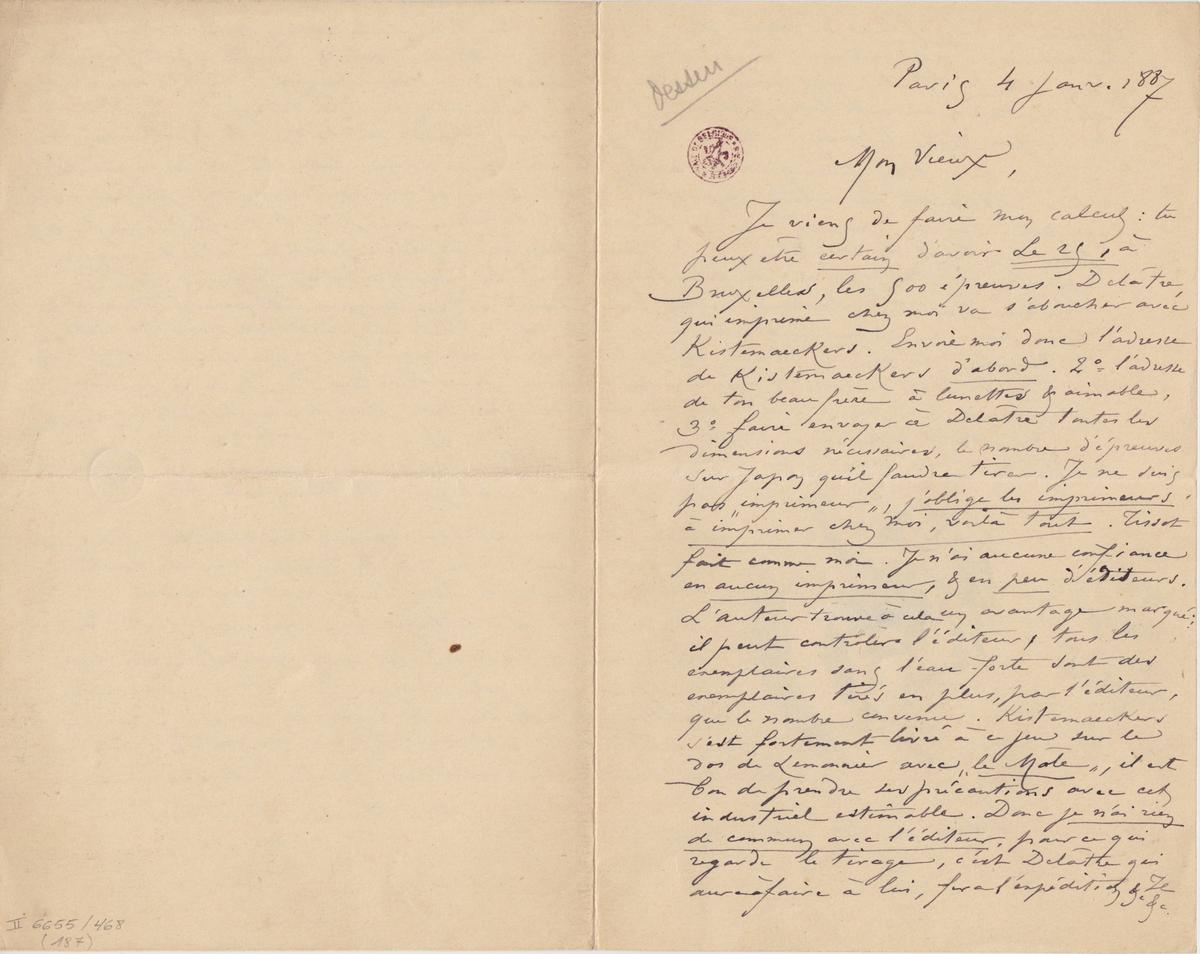 Dessin
Paris 4 Janv. 1887
Mon Vieux,
Je viens de faire mon calcul : tu
peux etre certain d'avoir Le 25, à
Bruxelles, les 500 épreuves. Delâtre,
qui imprime chez moi va s'aboucher avec
Kistemaeckers. Envoie moi donc l'adresse
de Kistemaeckers d'abord. 2º l'adresse
de ton beau frère à lunettes & aimable,
3º faire envoyer à Delâtre toutes les
dimensions nécessaires, le nombre d'épreuves
sur Japon qu'il faudra tirer. Je ne suis
pas "imprimeur", j'oblige les imprimeurs
à imprimer chez moi, voilà tout. Tissot
fait comme moi. Je n'ai aucune confiance
en aucun imprimeur, & en peu d'éditeurs.
L'auteur trouve à cela un avantage marqué:
il peut contrôler l'éditeur, tous les
exemplaires sans l'eau-forte sont des
exemplaires tirés en plus, par l'éditeur,
que le nombre convenu. Kistemaeckers
s'est fortement livré à ce jeu sur le
dos de Lemonnier avec "le Mâle", il est
bon de prendre ses précautions avec cet
industriel estimable. Donc je n'ai rien
de commun avec l'éditeur, pour ce qui
regarde le tirage, c'est Delâtre qui
aura à faire à lui, fera l'expédition &c
&c.
II 6655/468
(187)